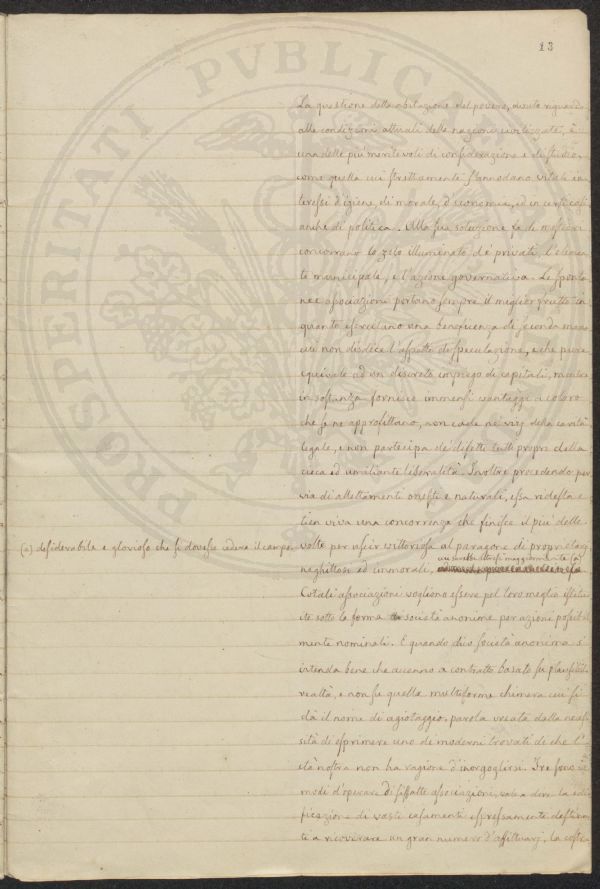 13
La questione delle abitazione del povero, avuto riguardo
alle condizioni attuali delle nazioni civilizzate, è
una delle più meritevoli di considerazione e di studio,
come quella cui strettamente s'annodano vitali in
teressi d'igiene, di morale, d'economia, ed in certi casi
anche di politica. Alla sua soluzione fa di mestieri
concorrano lo zelo illuminato de' privati,
te municipale, e l'azione governativa. Le sponta
nee associazioni portano sempre il miglior frutto in
quanto esercitano una beneficenza di seconda mano
cui non disdice l'aspetto di speculazione, e che pure
equivale ad un discreto impiego di capitali, mentre
in sostanza fornisce immensi vantaggi a coloro
che se ne approfittano, non cade ne' vizj della carità
legale, e non partecipa de' difetti tutti propri della
cieca ed umiliante liberalità. Inoltre procedendo per
via di allettamenti onesti e naturali, essa ridesta e
tien viva una concorrenza che finisce il più delle
(a) desiderabile e glorioso che si dovesse cedere il campo.
volte per uscir vittoriosa al paragone di proprietarj
cui sarebbe altresì maggiormente (a)
neghittosi ed immorali,
Cotali associazioni vogliono essere pel loro meglio istitui
te sotto la forma di società anonime per azioni possibil
mente nominali. E quando dico società anonima s'
intenda bene che accenno a contratto basato su plausibili
realtà, e non su quella multiforme chimera cui si
dà il nome di agiotaggio, parola creata dalla neces
sità di esprimere uno de' moderni trovati di che l'
età nostra non ha ragione d'inorgoglirsi. Tre sono i
modi d'operare di siffatte associazioni, vale a dire la edi
ficazione di vaste casamenti espressamente destina
ti a ricoverare un gran numero d'affittuarj, la costru
PROSPERITATI PVBLICAE